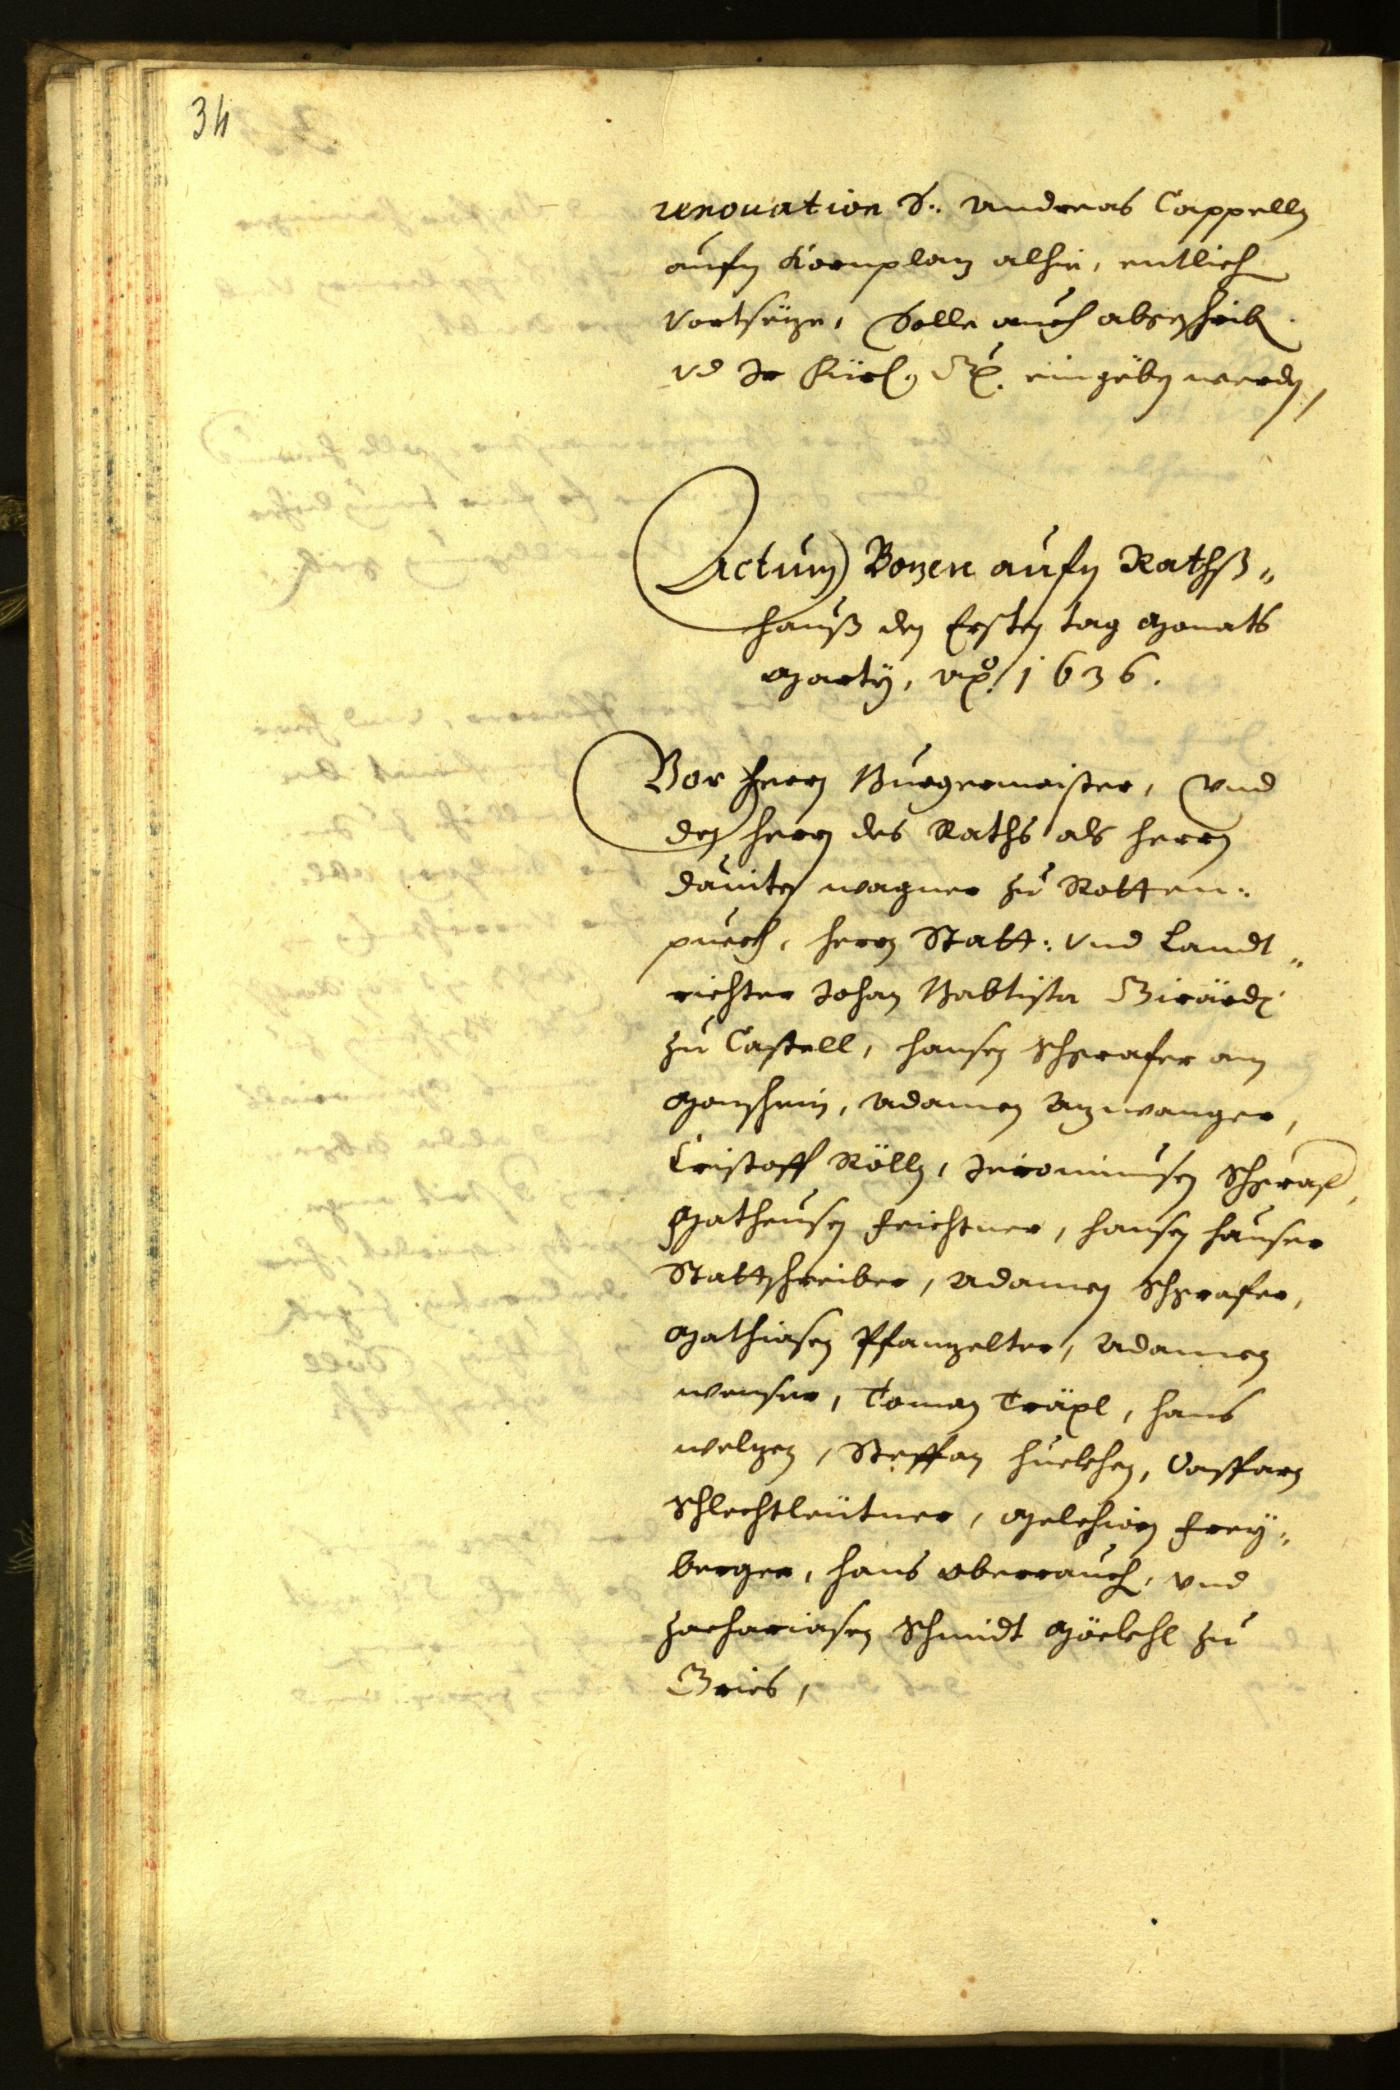 34
renovation S: Andreas Cappelln
aufn Kornplaz alhie, entlich
Vortseze, Solle auch abgeschrib
vd Ir eingeben werden,
Actum Bozen aufn Rathß„
hauß den Ersten tag Monats
Marty, Ao. 1636.
Vor Herrn Burgermaister, Vnd
den herrn des Raths als herrn
Dauiten Wagner zu Rotten:
puech, herrn Statt: Vnd Landt„
richter Johan Babtista Girärdi
zu Castell, hansen Schgrafer am
Adamen Azwanger,
Cristoff Röll, Jeronimusen Schgraf,
Matheusen Feichtner, hansen hauser
Stattschreiber, Adamen Schgrafer,
Mathiasen Pfanzelter, Adamen
Wenser, Toman Träpl, hans
Welzen, Steffan huebehen, Casparn
Schlechtleütner, Melchiorn Frey„
berger, hans Oberrauch, Vnd
Zachariasen Schmidt zu
Gries,